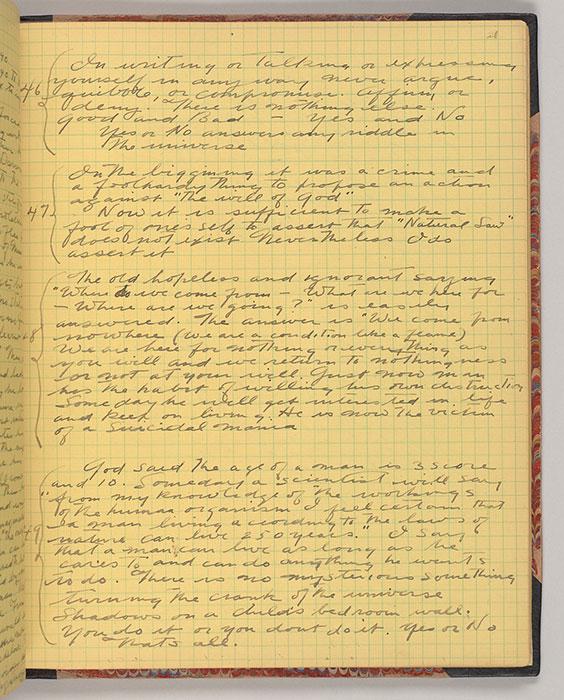 In writing or talking or expressing
46 yourself in any way never argue,
quibble, or compromise. Affirm or
deny. There is nothing else.
Good and Bad — Yes and No
Yes or No answers any riddle in
the universe
In the biggining it was a crime and
a foolhardy thing to propose an action
against "the will of God".
47 Now it is sufficient to make a
fool of ones self to assert that "Natural Law"
does not exist Nevertheless I do
assert it
The old hopeless and ignorant saying
"Where do we come from — What are we here for
— Where are we going?" is easily
answered. The answer is "We come from
48 nowhere (We are a condition like a flame)
We are here for nothing or everything as
you will and we return to nothingness
or not at your will. Just now man
has the habit of willing his own distruction
Some day he will get interested in life
and keep on living. He is now the victim
of a suicidal mania
God said the age of a man is 3 score
and 10. Someday a "scientist" will say
"from my knowledge of the workings
of the human organism I feel certain that
a man living according to the laws of
49 nature can live 250 years." I say
that a man can live as long as he
cares to and can do anything he wants
to do. There is no mysterious something
turning the crank of the universe
Shadows on a child's bedroom wall.
You do it or you dont do it. Yes or No
thats all.